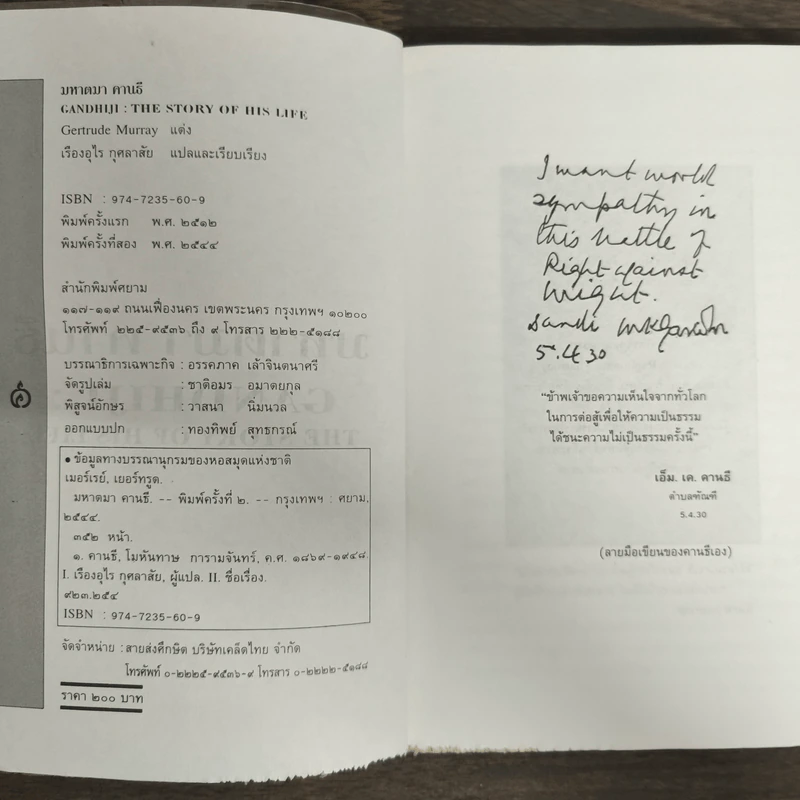 มหาตมา คานธี
GANDHIJI : THE STORY OF HIS LIFE
Gertrude Murray แต่ง
เรืองอุไร กุศลาสัย แปลและเรียบเรียง
ISBN : 974-7235-60-9
พิมพ์ครั้งแรก พ.ศ. ๒๕๑๒
พิมพ์ครั้งที่สอง พ.ศ. ๒๕๔๔
สำนักพิมพ์ศยาม
๑๑๗-๑๑๙ ถนนเฟื่องนคร เขตพระนคร กรุงเทพฯ ๑๐๒๐๐
โทรศัพท์ ๒๒๕-๙๕๓๖ ถึง ๙ โทรสาร ๒๒๒-๕๑๘๘
บรรณาธิการเฉพาะกิจ : อรรคภาค เล้าจินตนาศรี
จัดรูปเล่ม : ชาติอมร อมาตยกุล
พิสูจน์อักษร : วาสนา นิ่มนวล
ออกแบบปก : ทองทิพย์ สุทธกรณ์
• ข้อมูลทางบรรณานุกรมของหอสมุดแห่งชาติ
เมอร์เรย์, เยอร์ทรูด.
มหาตมา คานธี. -- พิมพ์ครั้งที่ ๒. -- กรุงเทพฯ : ศยาม,
๒๕๔๔.
๓๕๒ หน้า.
๑. คานธี, โมหันทาษ การามจันทร์, ค.ศ. ๑๘๖๙-๑๙๔๘.
I. เรืองอุไร กุศลาสัย, ผู้แปล. II. ชื่อเรื่อง.
๙๒๓.๒๕๔
ISBN : 974-7235-60-9
จัดจำหน่าย : สายส่งศึกษิต บริษัทเคล็ดไทย จำกัด
โทรศัพท์ ๐-๒๒๒๕-๙๕๓๖-๙ โทรสาร ๐-๒๒๒๒-๕๑๘๘
ราคา ๒๐๐ บาท
I want world
sympathy in
this battle of
Right against
might.
Dandi MKGandhi
5.4.30
“ข้าพเจ้าขอความเห็นใจจากทั่วโลก
ในการต่อสู้เพื่อให้ความเป็นธรรม
ได้ชนะความไม่เป็นธรรมครั้งนี้”
เอ็ม. เค. คานธี
ตำบลทัณฑี
5.4.30
(ลายมือเขียนของคานธีเอง)